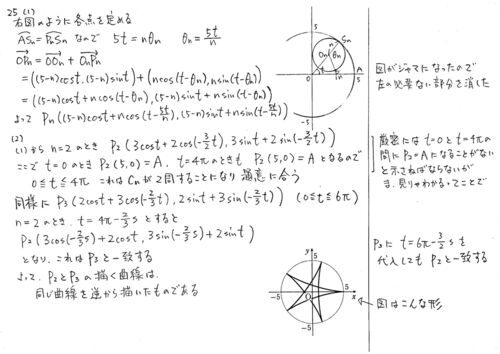 25 (1)
右図のように各点を定める
AS̑n = PnSn なので 5t = nθn θn = 5t/n
OPn = OOn + OnPn
= ((5-n)cost, (5-n)sint) + (ncos(t-θn), nsin(t-θn))
= ((5-n)cost + ncos(t-θn), (5-n)sint + nsin(t-θn))
よって Pn((5-n)cost + ncos(t-5t/n), (5-n)sint + nsin(t-5t/n))
(2)
(1)から n=2のとき P2(3cost + 2cos(-3/2t), 3sint + 2sin(-3/2t))
ここで t=0のとき P2(5,0)=A. t=4πのときも P2(5,0)=A となるので
0≦t≦4π これは Cnが2周することになり 題意に合う
同様に P3(2cost + 3cos(-2/3t), 2sint + 3sin(-2/3t)) (0≦t≦6π)
n=2のとき. t=4π-2/3s とすると
P2(3cos(-2/3s) + 2cost, 3sin(-2/3s) + 2sint)
となり、これは P3と一致する
よって、P2とP3の描く曲線は、
同じ曲線を逆から描いたものである
5
Sn
n
θn
On
t
0
Pn
A
5
図がジャマになったので
左の必要ない部分を消した
厳密には t=0とt=4πの
間に P2=Aになることがない
と示さねばならないが
ま、見りゃわかるってことで
P3に t=6π-3/2s を
代入しても P2と一致する
y
5
-5
O
5
x
-5
図はこんな形